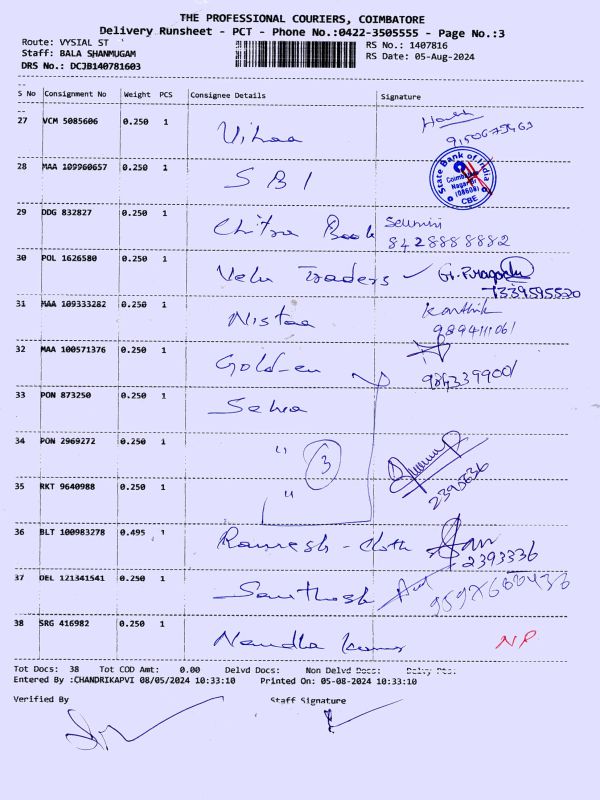 THE PROFESSIONAL COURIERS, COIMBATORE
Delivery Runsheet - PCT - Phone No.:0422-3505555 - Page No.:3
Route: VYSIAL ST RS No.: 1407816
Staff: BALA SHANMUGAM RS Date: 05-Aug-2024
DRS No.: DCJB140781603
S No Consignment No Weight PCS Consignee Details Signature
27 VCM 5085606 0.250 1 Vihaa
28 MAA 109960657 0.250 1 S B I
State Bank of India Coimbatore Nagar CBE
29 DDG 832827 0.250 1 Chitra Book 8428888882
30 POL 1626580 0.250 1 Velu Traders 7339595520
31 MAA 109333282 0.250 1 Nistaa Karthik
9894111061
32 MAA 100571376 0.250 1 Golden
33 PON 873250 0.250 1
34 PON 2969272 0.250 1 " 3
35 RKT 9640988 0.250 1 " 2390636
36 BLT 100983278 0.495 1 Ramesh - Cloth 2393336
37 OEL 121341541 0.250 1 Santhosh
38 SRG 416982 0.250 1 Nandha Kumar NP
Tot Docs: 38 Tot COD Amt: 0.00 Delvd Docs: Non Delvd Docs: Delvy Pts:
Entered By :CHANDRIKAPVI 08/05/2024 10:33:10 Printed On: 05-08-2024 10:33:10
Verified By Staff Signature